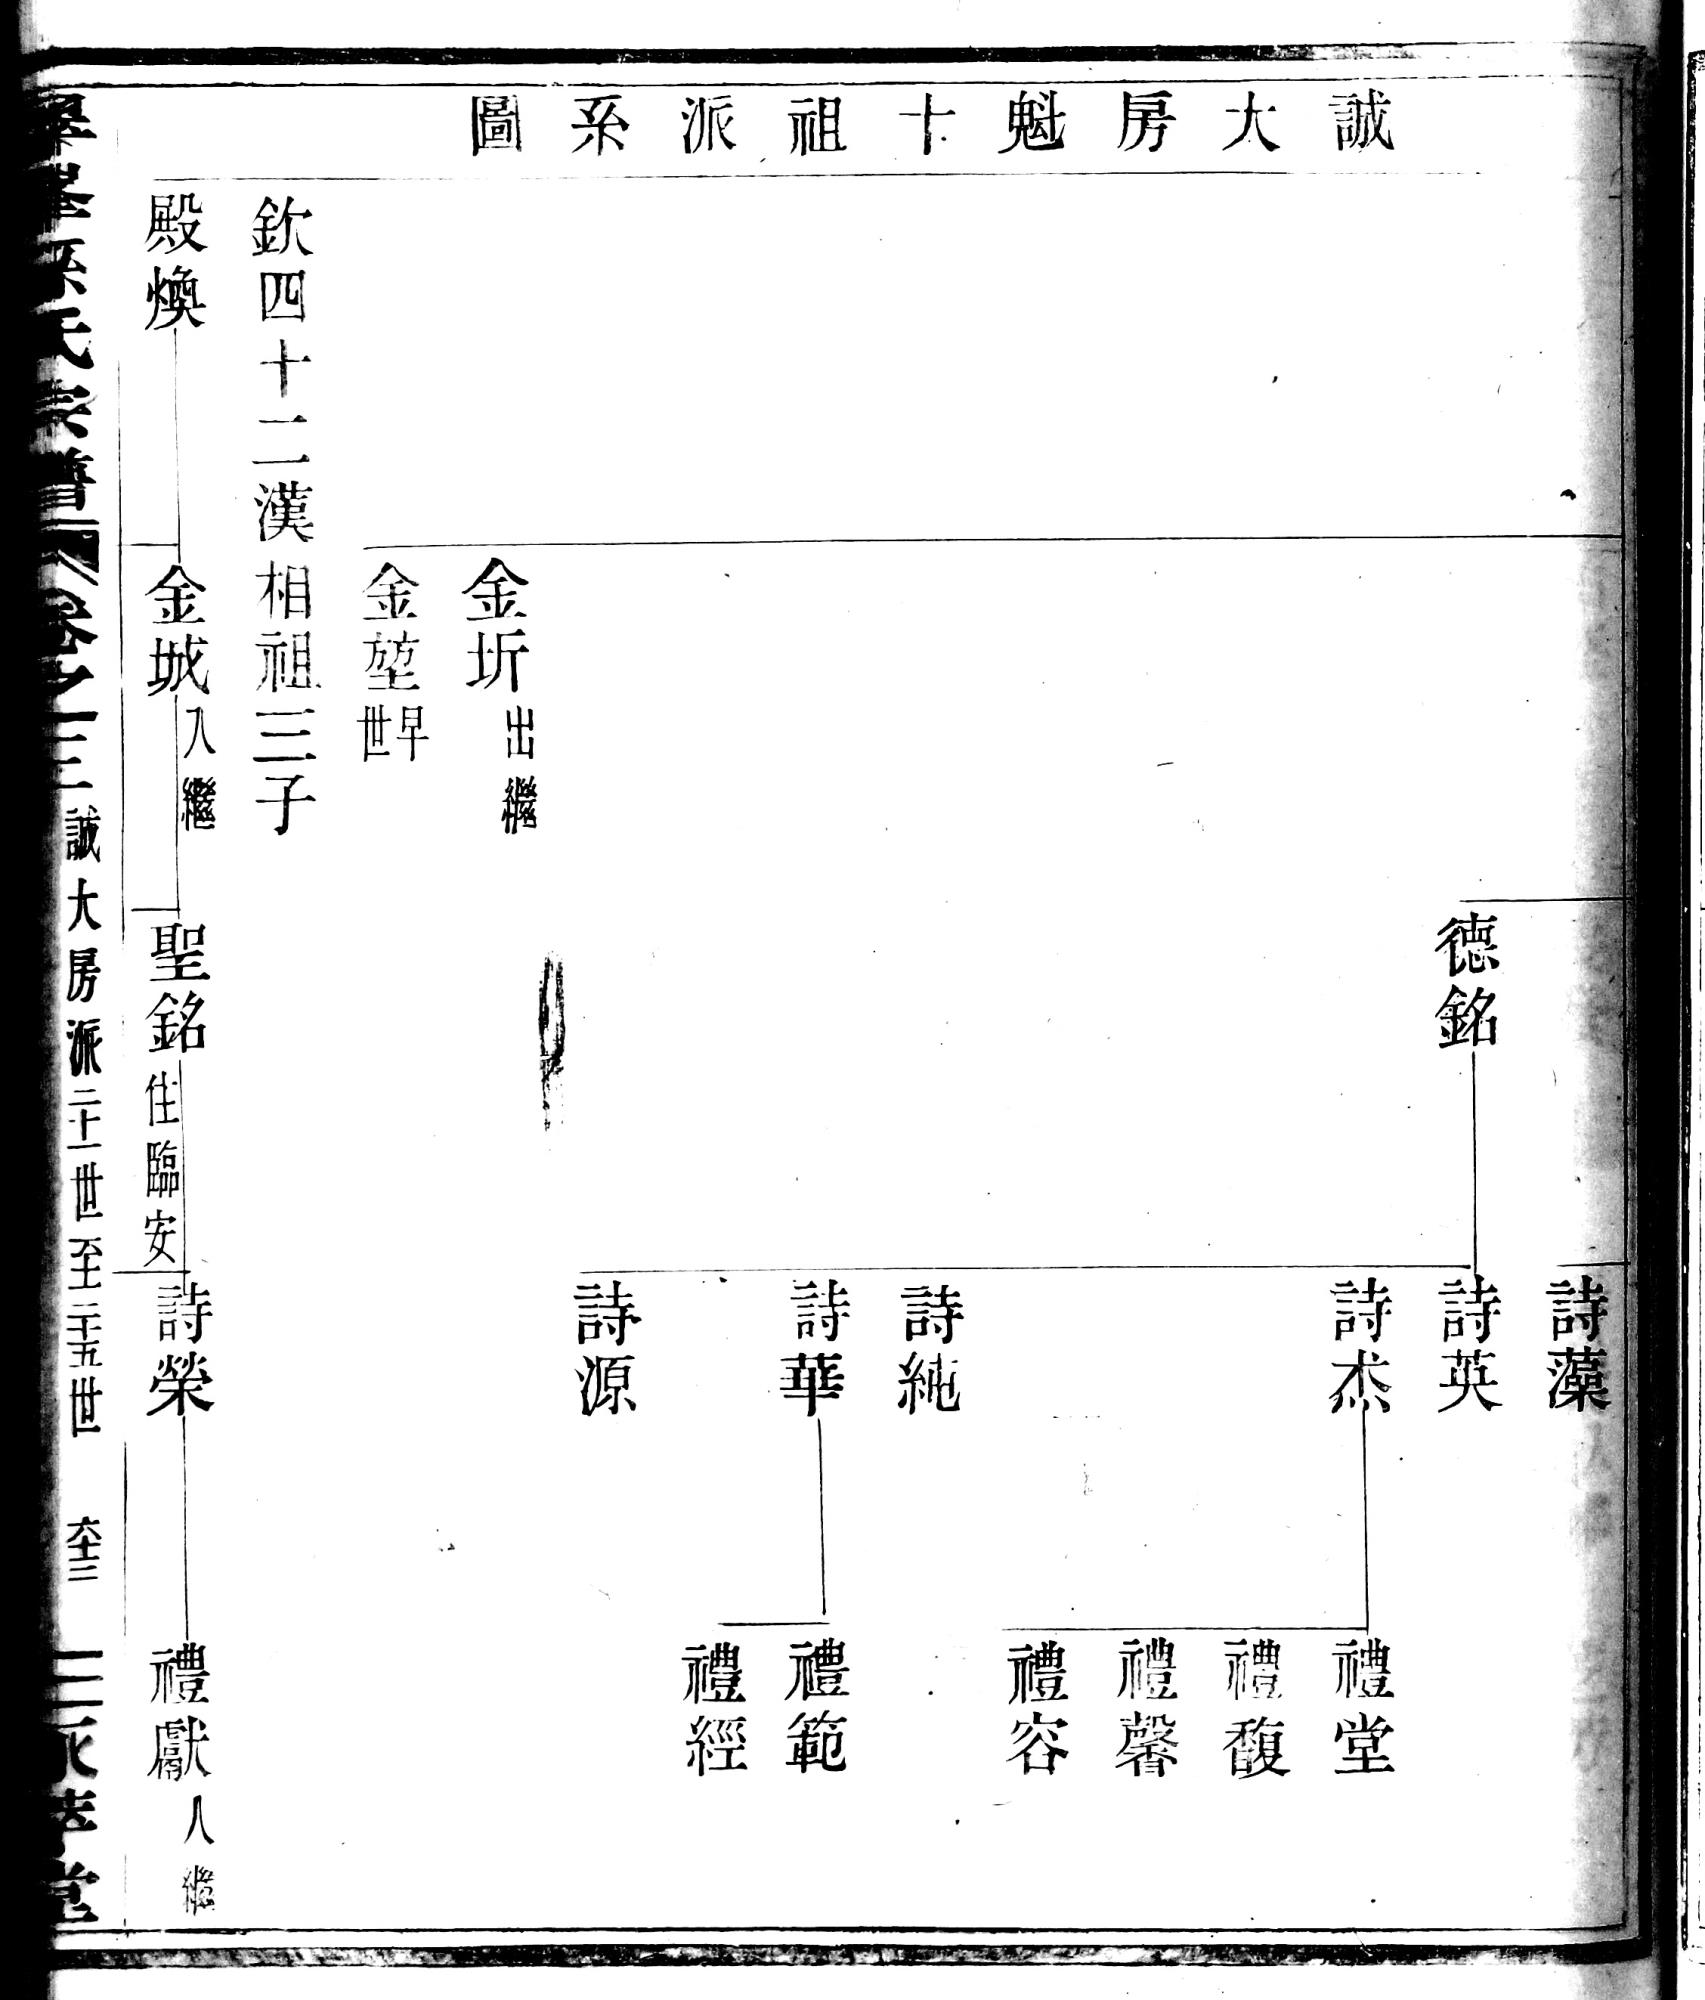 誠大房魁十祖派系圖
詩藻
德銘
詩英
詩杰
禮堂
禮馥
禮馨
禮容
詩純
詩華
禮範
禮經
詩源
金圻出繼
金堃早世
欽四十二漢相祖三子
殿煥
金城入繼
聖銘住臨安
詩榮
禮獻入繼
孫氏宗譜 卷之三 誠大房派二十一世至二十五世 堂